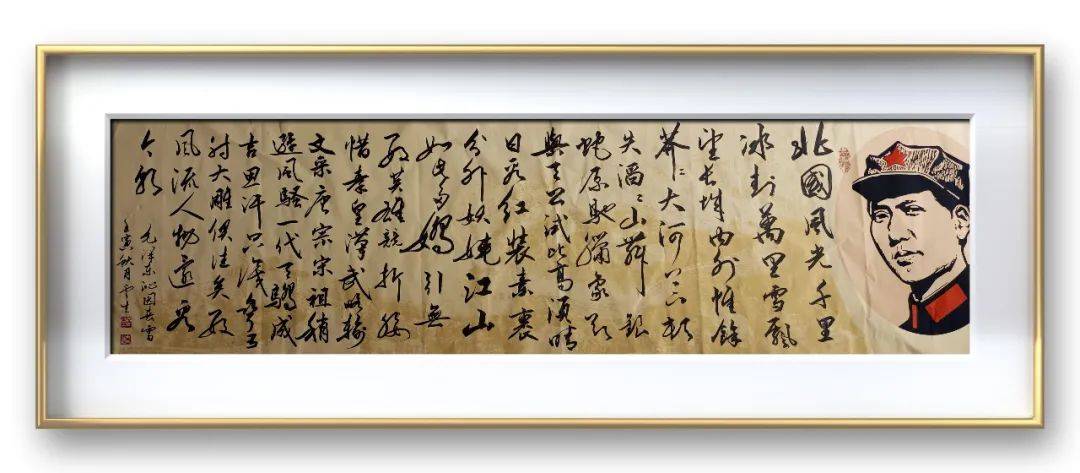 北國風光千里
冰封萬里雪飄
望長城内外惟餘
莽々大河上下頓
失滔々山舞銀
蛇原馳蠟象欲
與天公試比高須晴
日看紅裝素裹
分外妖嬈江山
如此多嬌引無
數英雄競折腰
惜秦皇漢武略輸
文采唐宗宋祖稍
遜風騷一代天驕成
吉思汗只識彎弓
射大雕俱往矣數
風流人物還看
今朝
毛澤東沁園春雪
壬寅秋月